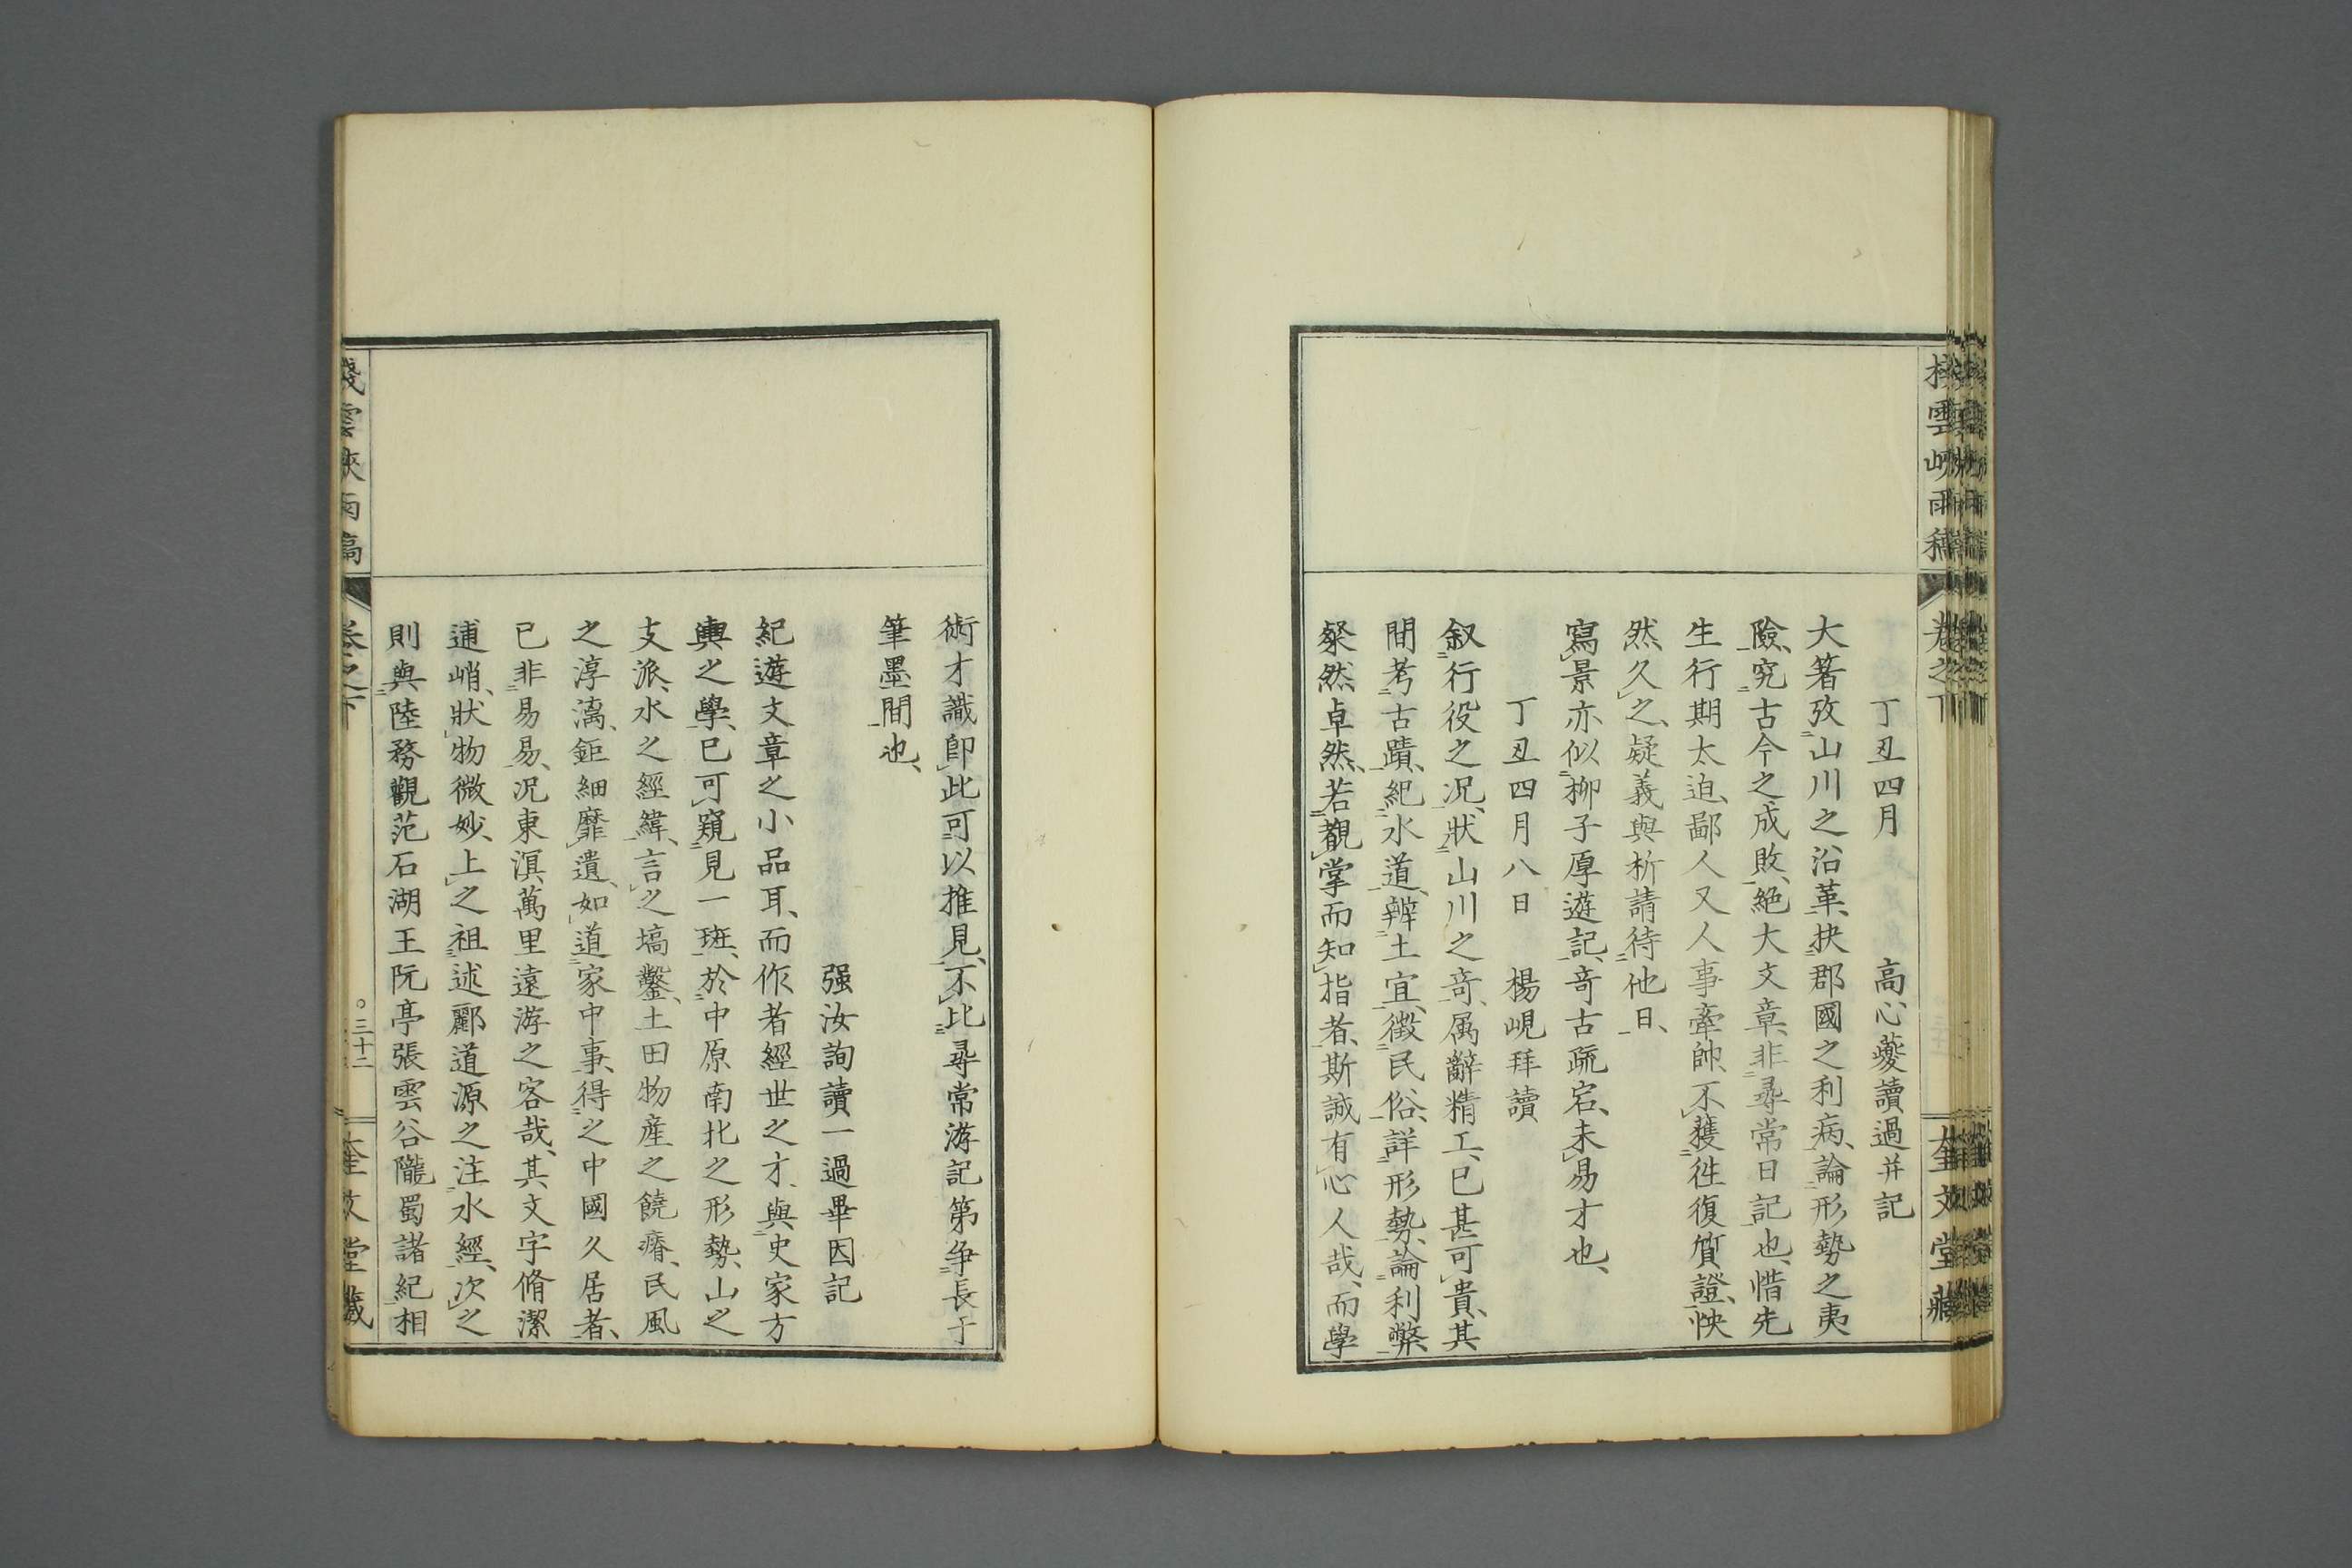 棧雲峽雨稿
卷之下
奎文堂藏
丁丑四月　高心夔讀過幷記
大著攷山川之沿革、抉郡國之利病、論形勢之夷
險、究古今之成敗、絕大文章、非尋常日記也、惜先
生行期太迫、鄙人又人事牽帥、不獲徃復質證、怏
然久之、疑義與析、請待他日、
寫景亦似柳子厚遊記、奇古疏宕、未易才也、
丁丑四月八日　楊峴拜讀
叙行役之况、狀山川之奇、属辭精工、已甚可貴、其
間考古蹟、紀水道、辨土宜、徵民俗、詳形勢、論利弊、
粲然卓然、若觀掌而知指者、斯誠有心人哉、而學
術才識卽此可以推見、不比尋常游記第争長于
筆墨間也、
强汝詢讀一過畢因記
紀遊文章之小品耳、而作者經世之才、與史家方
輿之學、已可窺見一斑、於中原南北之形勢、山之
支派、水之經緯、言之塙鑿、土田物産之饒瘠、民風
之淳漓、鉅細靡遺、如道家中事、得之中國久居者、
已非易易、况東溟萬里遠游之客哉、其文字脩潔
逋峭、狀物微妙、上之祖述酈道源之注水經、次之
則與陸務觀范石湖王阮亭張雲谷隴蜀諸紀相
棧雲峽雨稿
卷之下
三十二
奎文堂藏